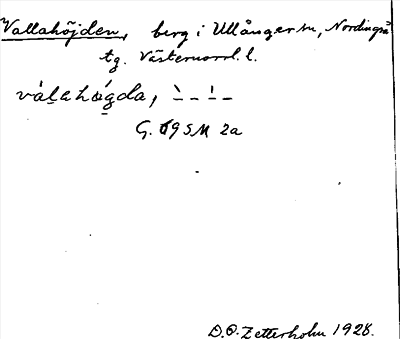 Vallahöjden, berg i Ullånger sn, Nordingrå
tg. Västernorrl. l.
vàlahǿgda,
G. 695M 2a
D.O. Zetterholm 1928.